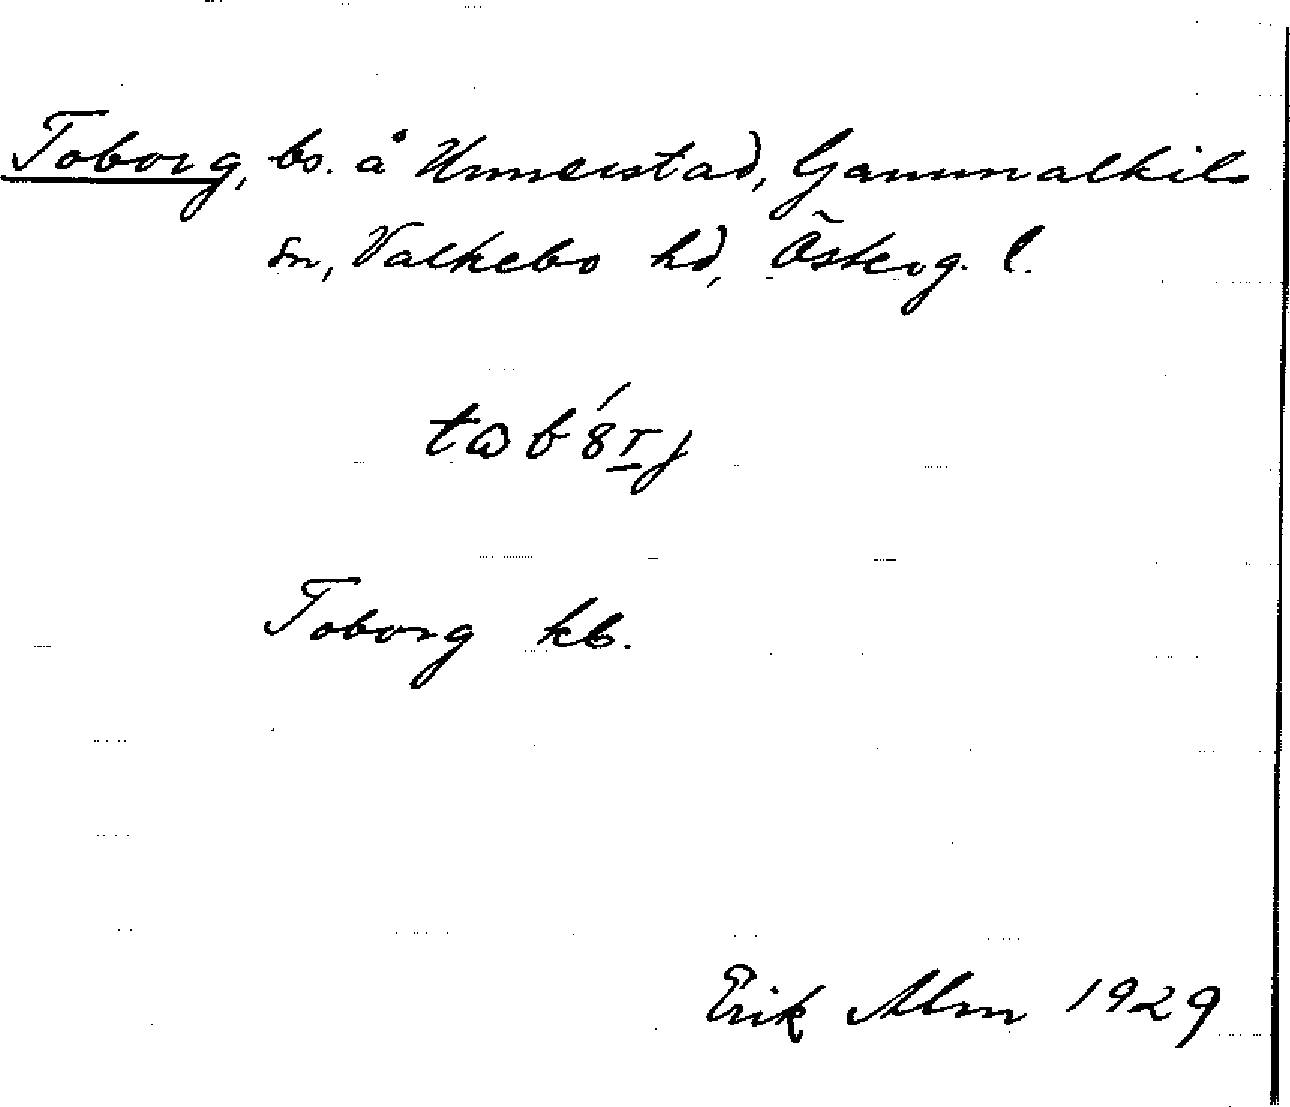 Toborg, bs. å Unnerstad, Gammalkils
sn, Valkebo hd, Österg. l.
Toborg kb.
Erik Alm 1929